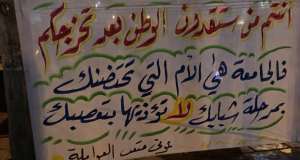 أنتم من ستقدون الوطن بعد تخرجكم
فالجامعة هي الأم التي تحتضنك
بمرحلة شبابك لا تؤذيها بتعصبك